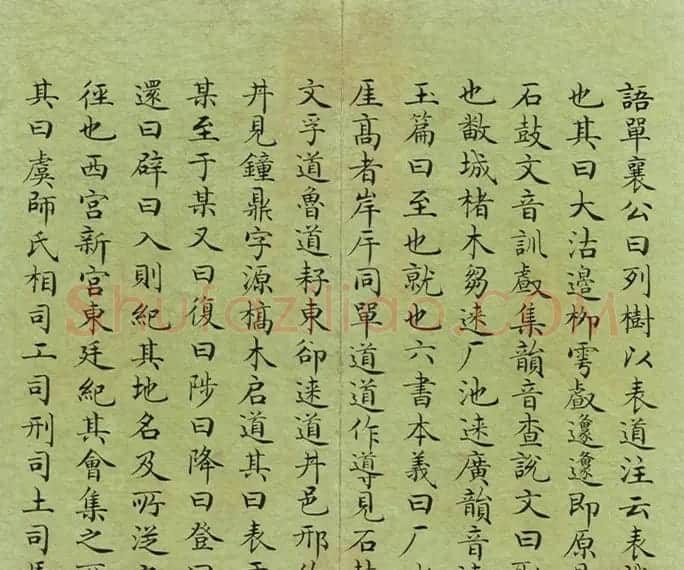 語單襄公曰列樹以表道注云表
也其曰大沽邊柳雩㪥邍邍即原
石鼓文音訓㪥集韻音查說文曰
也散城楮木芻逨厂池逨廣韻音
玉篇曰至也就也六書本義曰厂
厓高者岸厈同單道道作導見石
文孚道魯道東卻逨道丼邑邢
丼見鐘鼎字源槁木启道其曰表
某至于某又曰復曰陟曰降曰登
還曰辟曰入則紀其地名及所
徑也西宮新宮東廷紀其會集之
其曰虞師氏相司工司刑司土司
Shufaziliao.COM